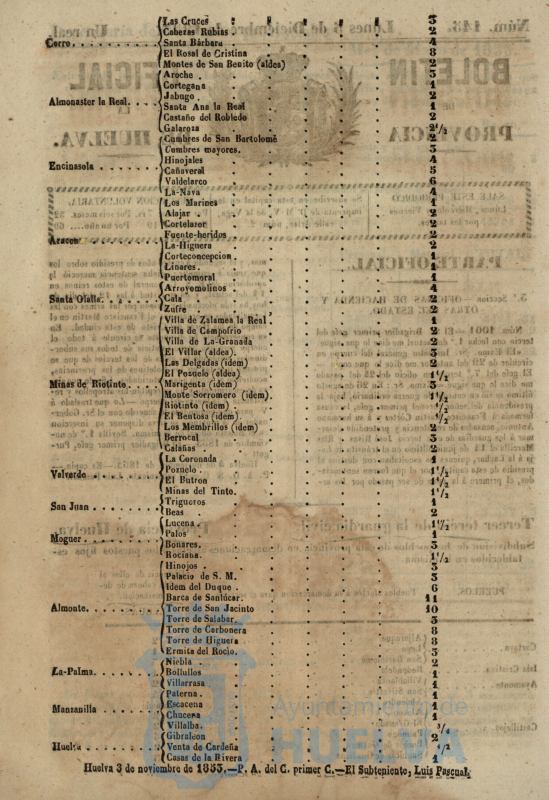 Las Cruces 3
Cabezas Rubias 2
Cerro. Santa Bárbara 4
El Rosal de Cristina 8
Montes de San Benito (aldea) 2
Aroche 3
Cortegana 1
Almonaster la Real. Jabugo 2
Santa Ana la Real 1
Castaño del Robledo 2
Galaroza 2 1/2
Cumbres de San Bartolomé 2
Cumbres mayores. 3
Encinasola Hinojales 4
Cañaveral 5
Valdelarco 6
La-Nava 4
Los Marines 1
Alajar 2
Cortelazor 2
Fuente-heridos 2
Aracena La-Higuera 2
Corteconcepcion 1
Linares. 1
Puertomoral 1
Arroyomolinos 4
Santa Olalla. Cala 2
Zufre 2
Villa de Zalamea la Real 1
Villa de Campofrio 2
Villa de La-Granada 2
El Villar (aldea). 3
Las Delgadas (idem) 2
El Pozuelo (aldea) 1 1/2
Minas de Riotinto. Marigenta (idem) 3
Monte Sorromero (idem) 1 1/2
Riotinto (idem)
El Bentosa (idem)
Los Membrillos (idem) 2
Berrocal 3
Calañas 2
La Coronada 1
Valverde Pozuelo
El Butron
Minas del Tinto.
San Juan Trigueros
Beas 2
Lucena
Moguer Palos 1
Bonares. 3
Rociana. 1 1/2
Hinojos 3
Palacio de S. M. 3
Idem del Duque 6
Barca de Sanlúcar. 11
Almonte. Torre de San Jacinto 10
Torre de Salabar 3
Torre de Carbonera 8
Torre de Higuera 8
Ermita del Rocio. 3
Niebla 2
La-Palma. Bollullos 1
Villarrasa 1
Paterna 1
Manzanilla Escacena 1
Chucena 1
Villalba
Gibraleon 2
Huelva Venta de Cardeña 1/2
Casas de la Rivera 1
Huelva 3 de noviembre de 1853.—P. A. del C. primer C.—El Subteniente, Luis Pascual.
Ayuntamiento de
HUELVA